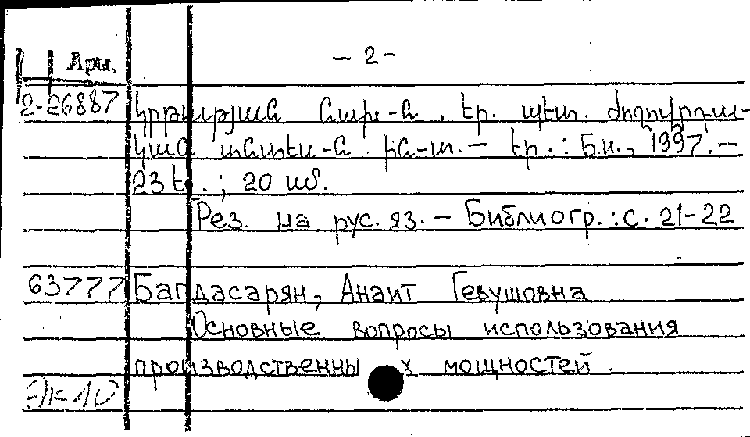 - 2 -
Арм.
2-26887 կրթության նախ-ն. Եր. պետ. ժողովրդա-
կան տնտես-ն. ին-տ. — Եր. : Б.и., 1997. —
23 էջ. ; 20 սմ.
Рез. на рус. яз. — Библиогр. : с. 21-22
63777 Багдасарян, Анаит Гевушовна
Основные вопросы использования
производственных мощностей.